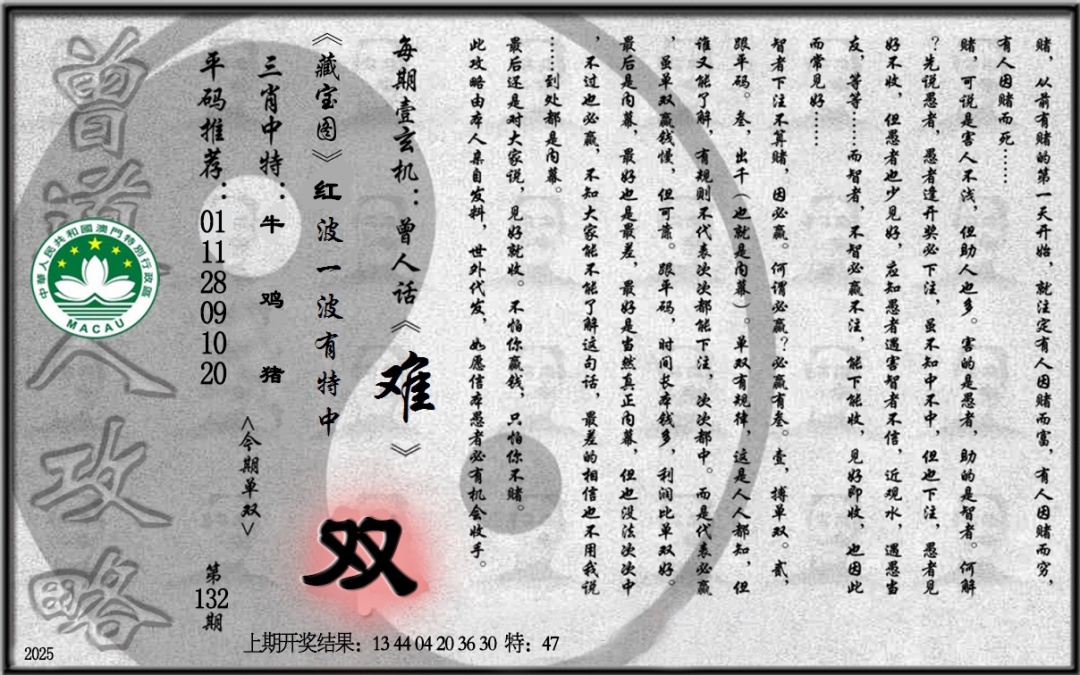 赌，从前有赌的第一天开始，就注定有人因赌而富，有人因赌而穷，
有人因赌而死……
赌，可说是害人不浅，但助人也多。害的是愚者，助的是智者。何解
？先说愚者，愚者逢开奖必下注，虽不知中不中，但也下注，愚者见
好不收，但愚者也少见好，应知愚者遇害智者不信，近观水，遇愚当
友，等等……而智者，不智必赢不注，能下能收，见好即收，也因此
而常见好……
智者下注不算赌，因必赢。何谓必赢？必赢有叁。壹，搏单双。贰，
跟平码。叁，出千（也就是内幕）。单双有规律，这是人人都知，但
谁又能了解，有规则不代表次次都能下注，次次都中。而是代表必赢
，虽单双赢钱慢，但可靠。跟平码，时间长本钱多，利润比单双好。
最后是内幕，最好也是最差，最好是当然真正内幕，但也没法次次中
，不过也必赢，不知大家能不能了解这句话，最差的相信也不用我说
……到处都是内幕。
最后还是对大家说，见好就收。不怕你赢钱，只怕你不赌。
此攻略由本人亲自发料，世外代发，如愿信本愚者必有机会收手。
每期壹玄机：曾人话《难》
《藏宝图》红波一波有特中
双
<今期单双>
三肖中特：牛 鸡 猪
平码推荐：01 11 28 09 10 20
第132期
曾道人攻略
中華人民共和國澳門特別行政區
MACAU
上期开奖结果：13 44 04 20 36 30 特：47
2025